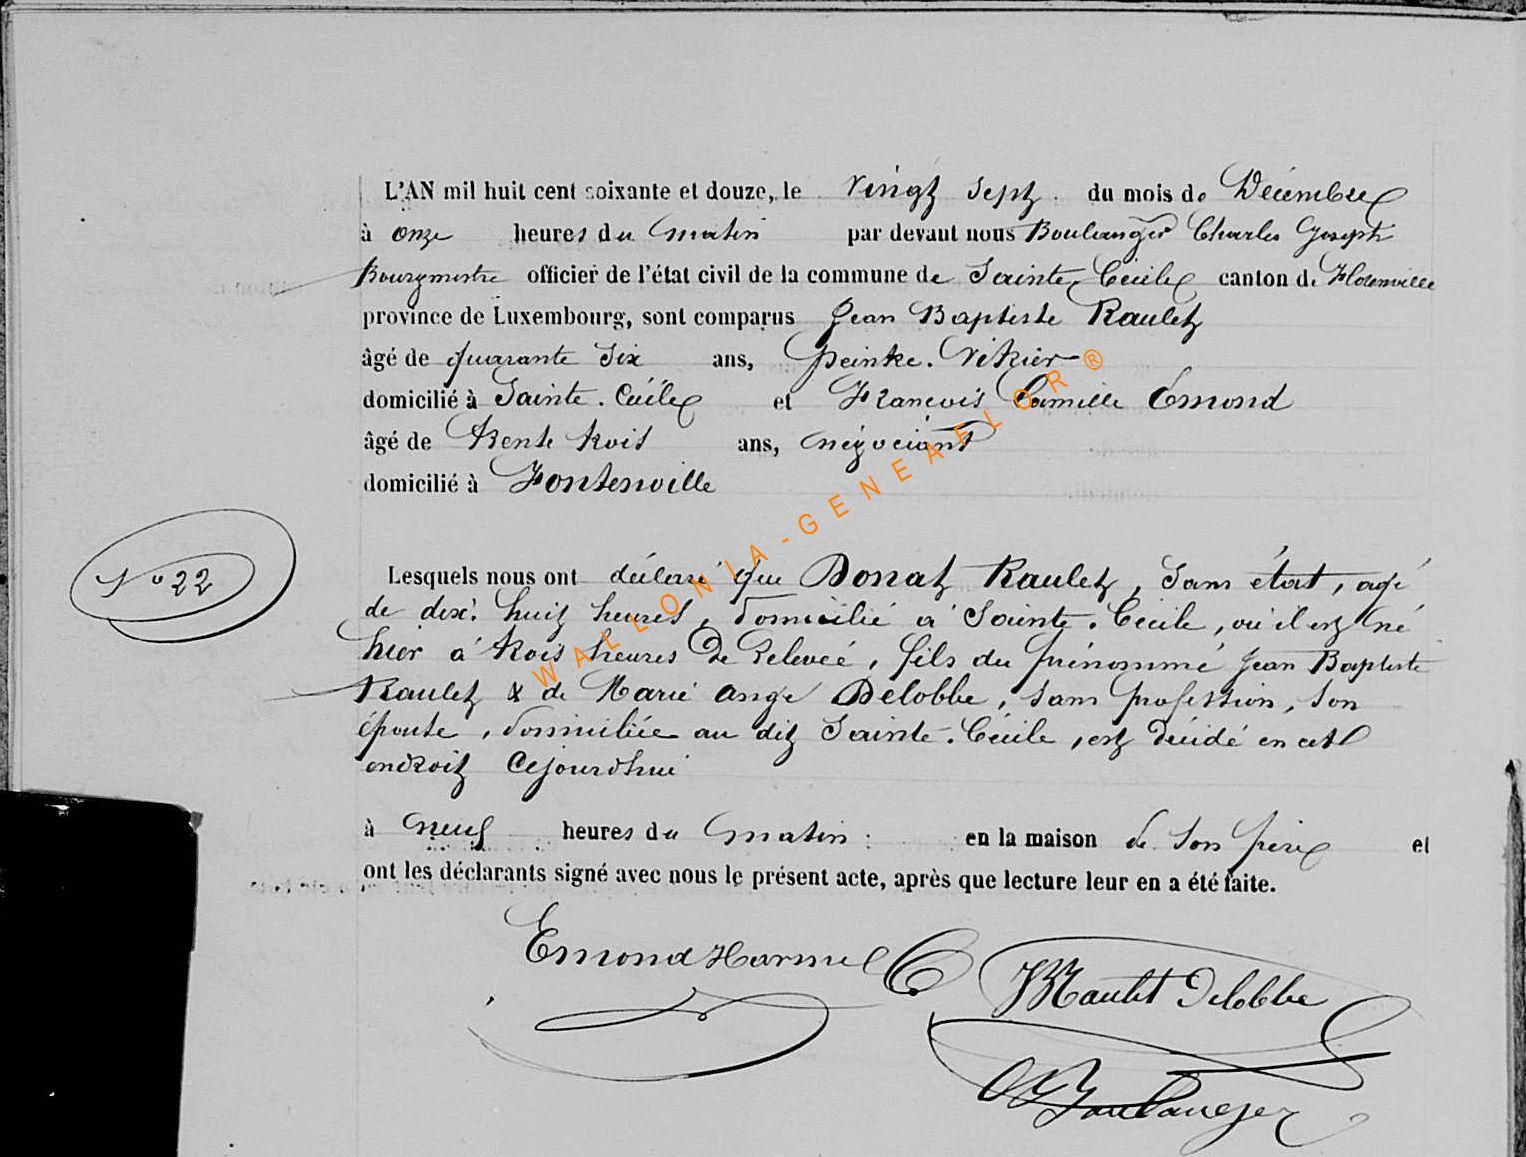 L'AN mil huit cent soixante et douze, le Vingt Sept du mois de Décembre
à onze heures du Matin par devant nous Boulanger Charles Joseph
Bourgmestre officier de l'état civil de la commune de Sainte Cécile canton de Florenville
province de Luxembourg, sont comparus Jean Baptiste Raulet
âgé de quarante Six ans, peintre. Vitrier
domicilié à Sainte. Cécile et Francois Camille Emond
âgé de trente trois ans, négociant
domicilié à Fontenoille
N° 22
Lesquels nous ont déclaré que Donat Raulet, Sans état, agé
de dix. huit heures, domicilié à Sainte. Cécile, où il est né
hier à trois heures de relevée, fils du prénommé Jean Baptiste
Raulet & de Marie Ange Delobbe, sans profession, son
épouse, domiciliée au dit Sainte. Cécile, est décédé en cet
endroit cejourd'hui
à neuf heures du matin en la maison de son père et
ont les déclarants signé avec nous le présent acte, après que lecture leur en a été faite.
Emond Harmel C
JBRaulet Delobbe
Boulanger
WALLONIA-GENEAFLOR®